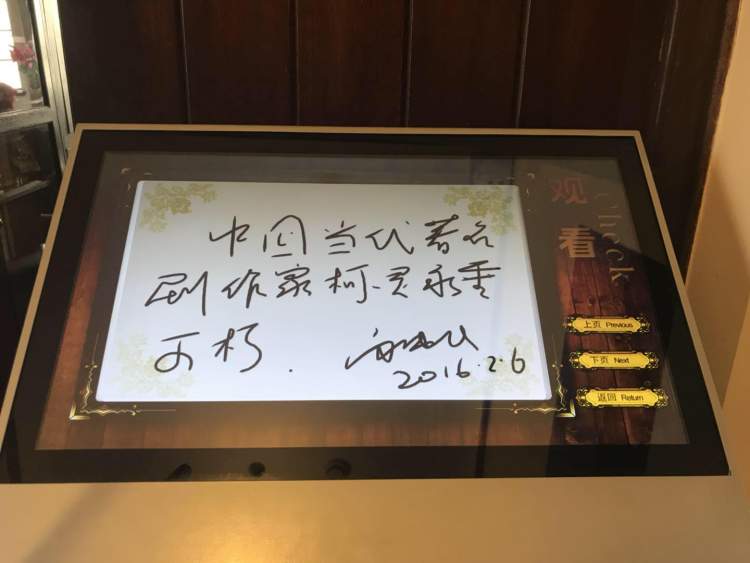 中国当代著名
剧作家柯灵永垂
不朽.
2016.2.6
观看
Check
上页 Previous
下页 Next
返回 Return